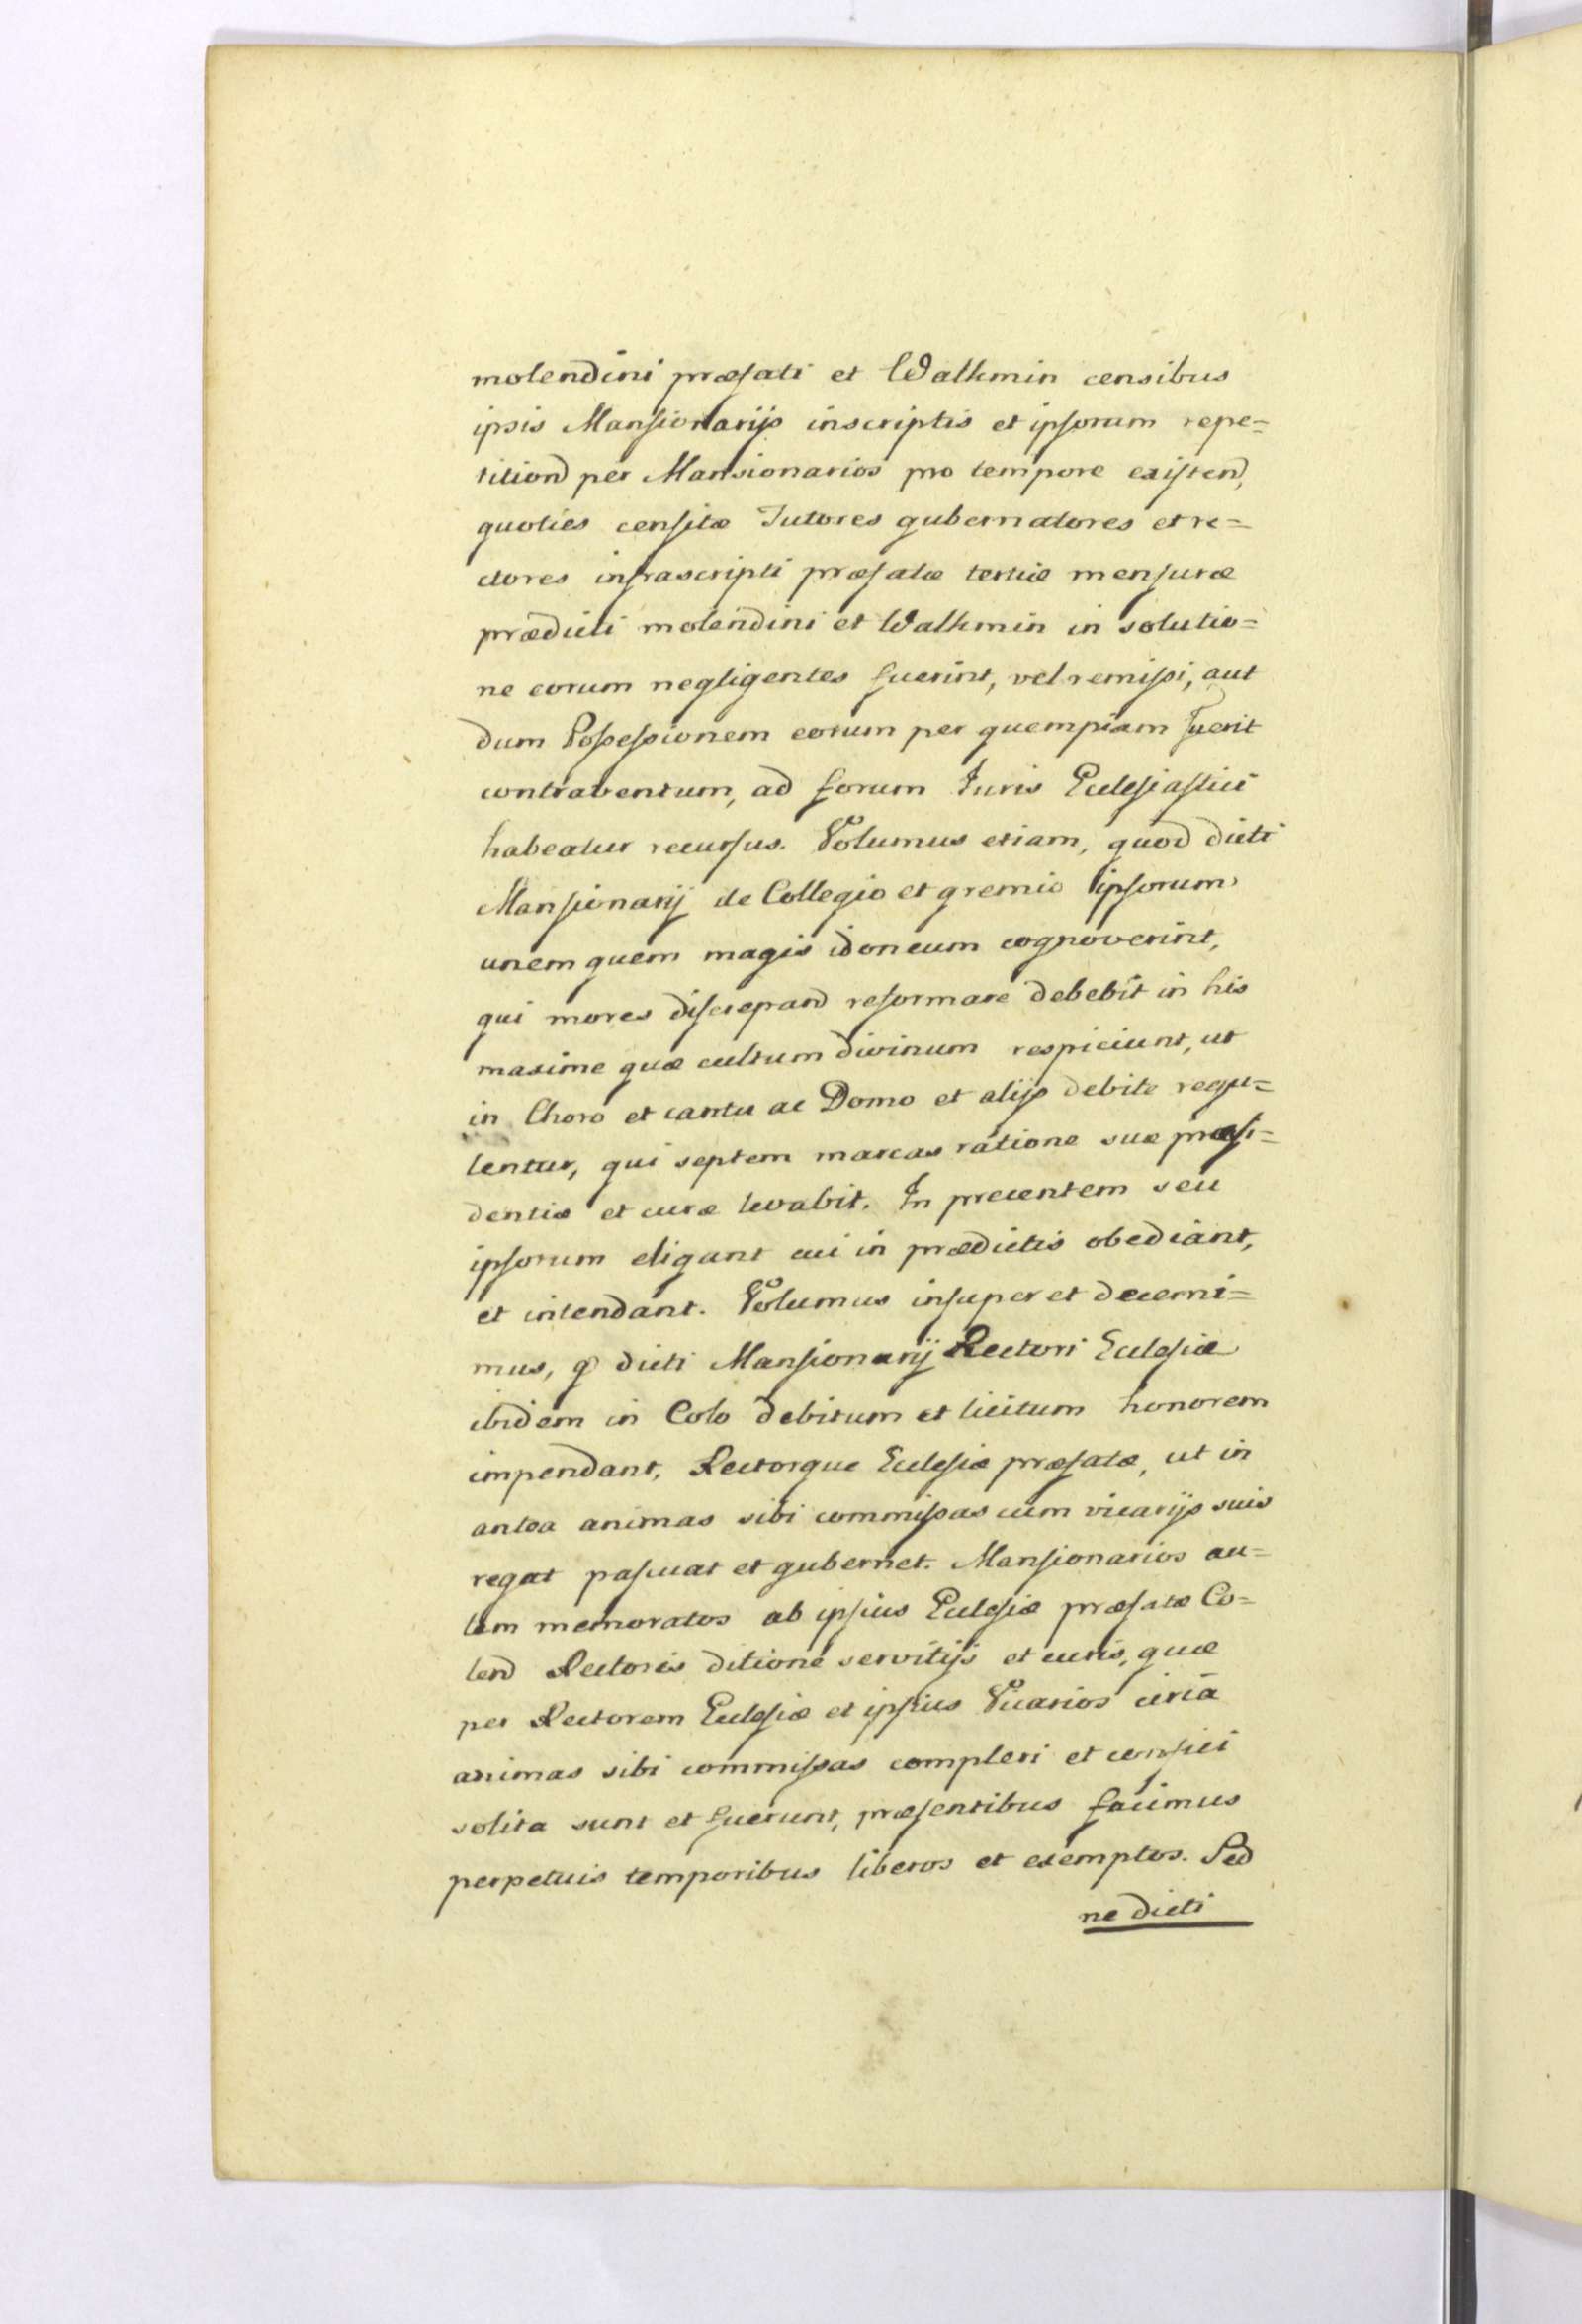 molendini præfati et Walkmin censibus
ipsis Mansionarijs inscriptis et ipsorum repe=
tition per Mansionarios pro tempore existen,
quoties censitæ Tutores gubernatores et re=
ctores infrascripti præfatæ tertiæ mensuræ
prædicti molendini et Walkmin in solutio=
ne eorum negligentes fuerint, vel remissi, aut
dum Possessionem eorum per quempiam fuerit
contraventum, ad forum Iuris Eclesiastici
habeatur recursus. Volumus etiam, quod dicti
Mansionarij de Collegio et gremio ipsorum
unem quem magis idoneum cognoverint,
qui mores discrepand reformare debebit in his
maxime quæ cultum divinum respiciunt, ut
in Choro et cantu ac Domo et alijs debite regu=
lentur, qui septem marcas ratione suæ præsi=
dentiæ et curæ levabit. In precentem seu
ipsorum eligant cui in prædictis obediant,
et intendant. Volumus insuper et decerni=
mus, q dicti Mansionarij Rectori Eclesiæ
ibidem in Colo debitum et licitum honorem
impendant, Rectorque Eclesiæ præfatæ, ut in
antea animas sibi commissas cum vicarijs suis
regat pascuat et gubernet. Mansionarios au=
tem memoratos ab ipsius Eclesiæ præfatæ Co=
lend Rectoris ditione servitijs et curis, quæ
per Rectorem Eclesiæ et ipsius Vicarios circa
animas sibi commissas compleri et confici
solita sunt et fuerunt, præsentibus facimus
perpetuis temporibus liberos et exemptos. Sed
ne dicti